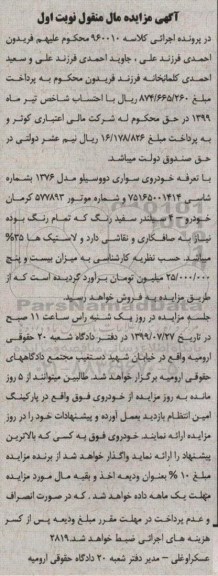 آگهی مزایده مال منقول نوبت اول
در پرونده اجرائی کلاسه ۹۶۰۰۱۰ محکوم علیهم فریدون
احمدی فرزند علی ، جاوید احمدی فرزند علی و سعید
احمدی کلمانخانه فرزند فریدون محکوم به پرداخت
مبلغ ۸۷۴/۶۶۵/۲۶۰ ریال با احتساب شاخص تیر ماه
۱۳۹۹ در حق محکوم له شرکت مالی اعتباری کوثر و
به پرداخت مبلغ ۱۶/۱۷۸/۸۲۶ ریال نیم عشر دولتی در
حق صندوق دولت میباشد
با تعرفه خودروی سواری دووسیلو مدل ۱۳۷۶ بشماره
شاسی ۷۵۱۶۵۰۰۱۴۱۴ و شماره موتور ۵۷۷۸۹۳ کرمان
خودرو ۴ سیلندر سفید رنگ که تمام رنگ بوده
نیاز به صافکاری و نقاشی دارد و لاستیک ها ۳۵%
میباشد. حسب نظریه کارشناسی به میزان بیست و پنج
۲۵/۰۰۰/۰۰۰ میلیون تومان برآورد گردیده است که از
طریق مزایده به فروش خواهد رسید.
جلسه مزایده در روز یک شنبه راس ساعت ۱۱ صبح
در تاریخ ۱۳۹۹/۰۷/۲۷ در دفتر دادگاه شعبه ۲۰ حقوقی
ارومیه واقع در خیابان شهید دستغیب مجتمع دادگاههای
حقوقی ارومیه برگزار خواهد شد. طالبین میتوانند از ۵ روز
مانده به روز مزایده از خودروی فوق واقع در پارکینگ
امین انتظام بازدید بعمل آورده و پیشنهادات خود را در روز
مزایده ارائه نمایند. خودروی فوق به کسی که بالاترین
پیشنهاد را ارائه نماید واگذار خواهد شد از برنده مزایده
مبلغ ۱۰ % بعنوان ودیعه اخذ و بقیه مال مورد مزایده
مهلت یک ماهه داده خواهد شد . که در صورت انصراف
و عدم پرداخت در مهلت مقرر مبلغ ودیعه پس از کسر
هزینه های اجرائی ضبط خواهد شد ۲۸۱۹
عسکراوغلی – مدیر دفتر شعبه ۲۰ دادگاه حقوقی ارومیه